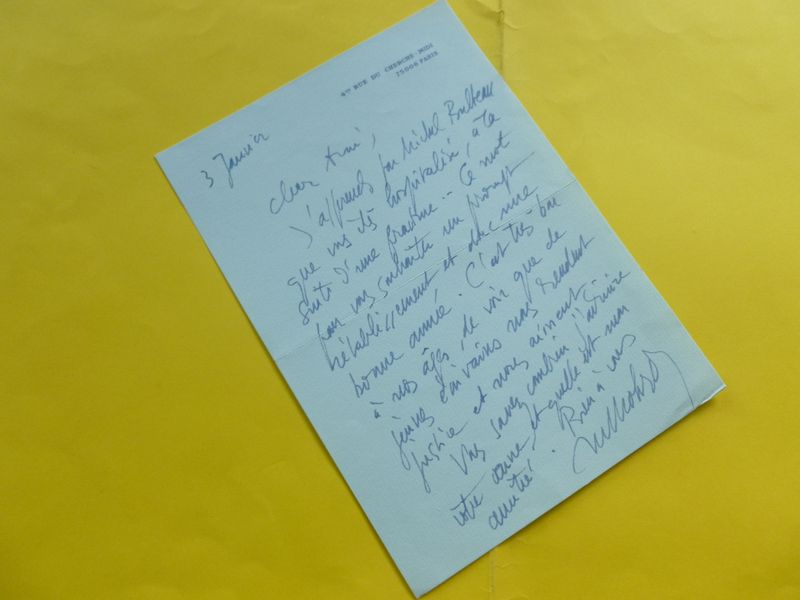 4ter RUE DU CHERCHE-MIDI
75006 PARIS
3 Janvier
Cher Ami,
J'apprends par Michel Bulteau
que vous êtes hospitalisé, à la
suite d'une fracture. - Ce mot
pour vous souhaiter un prompt
rétablissement et donc une
bonne année. C'est très bon
à nos âges, de voir que de
jeunes écrivains nous rendent
justice et nous aiment.
Vous savez combien j'admire
votre œuvre, et quelle est mon
amitié. Bien à vous